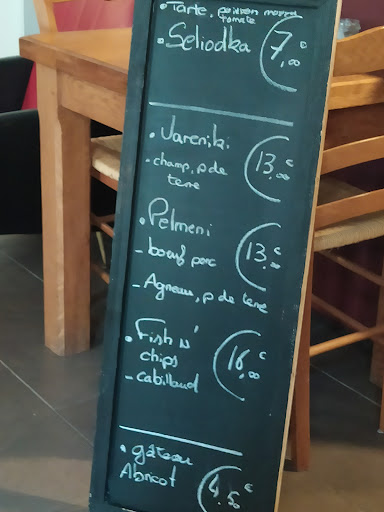 • Tarte, poivron
tomate
• Seliodka 7,00 €
• Vareniki
- champ, p de
terre 13,00 €
• Pelmeni
- boeuf porc 13,00 €
- Agneau, p de terre
• Fish n'
chips 16,00 €
- cabillaud
• gâteau
Abricot 4,50 €